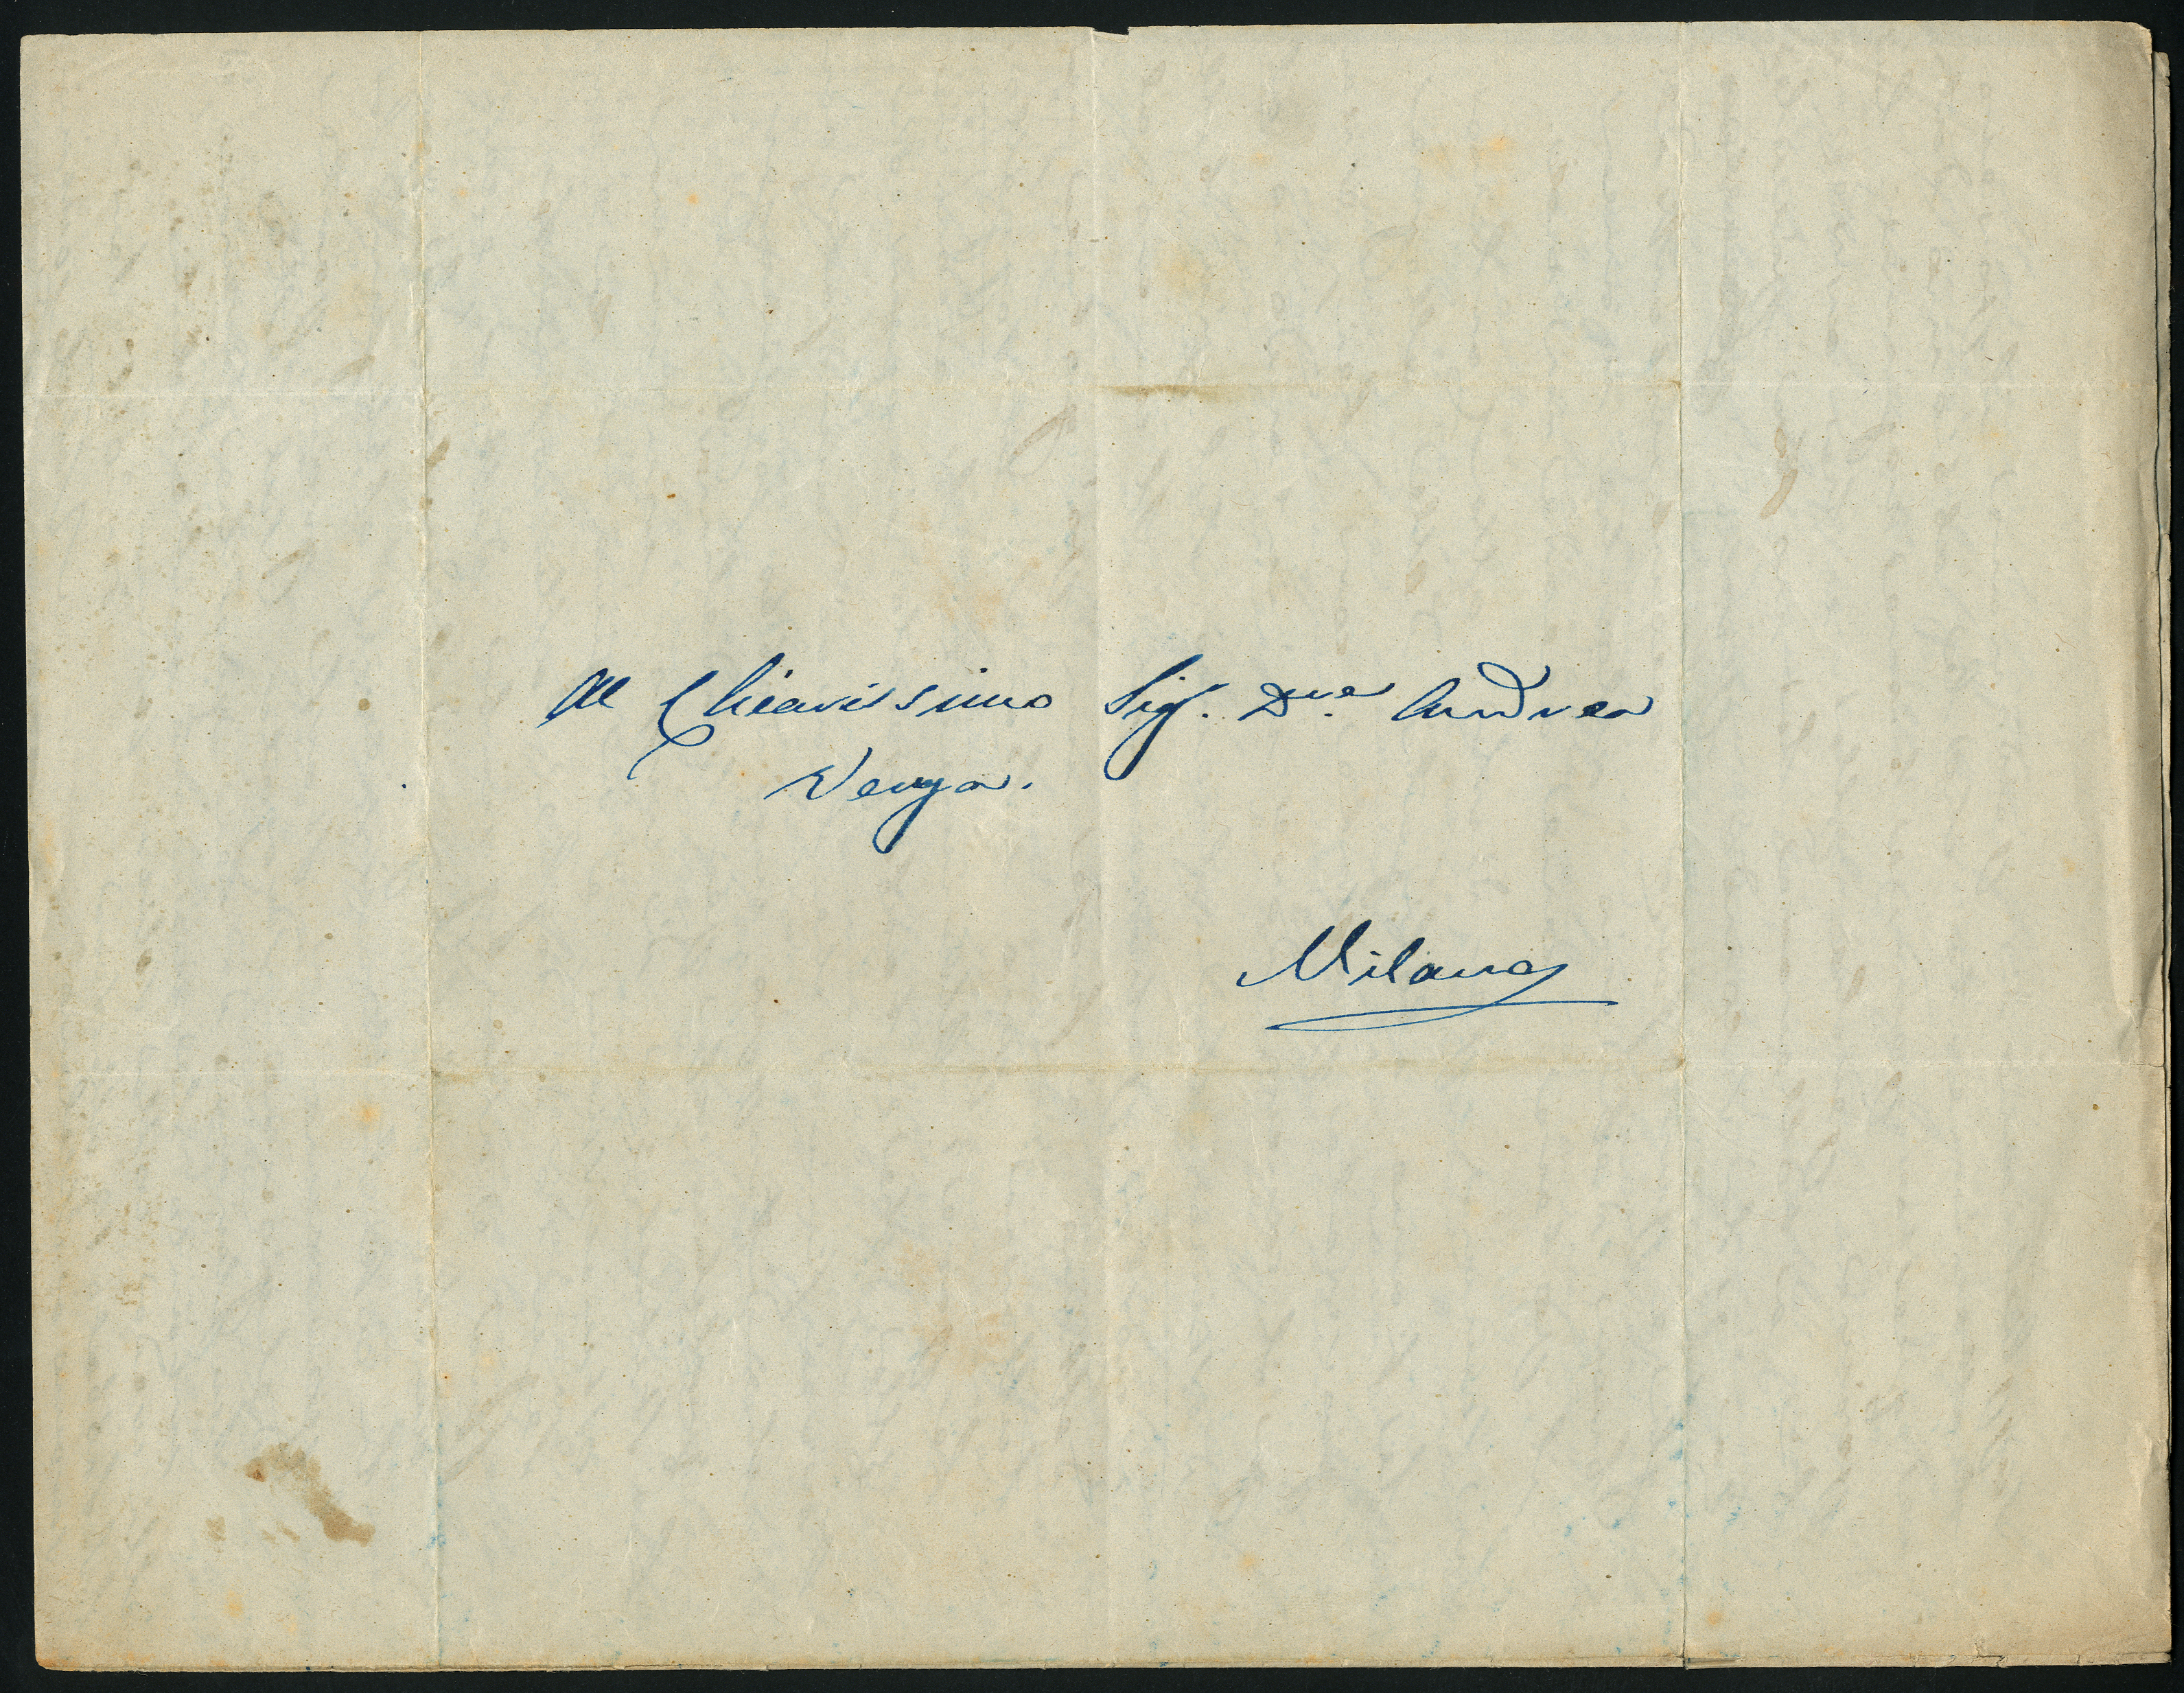 Al Chiarissimo Sigr. Dre. Andrea
Verga.
Milano